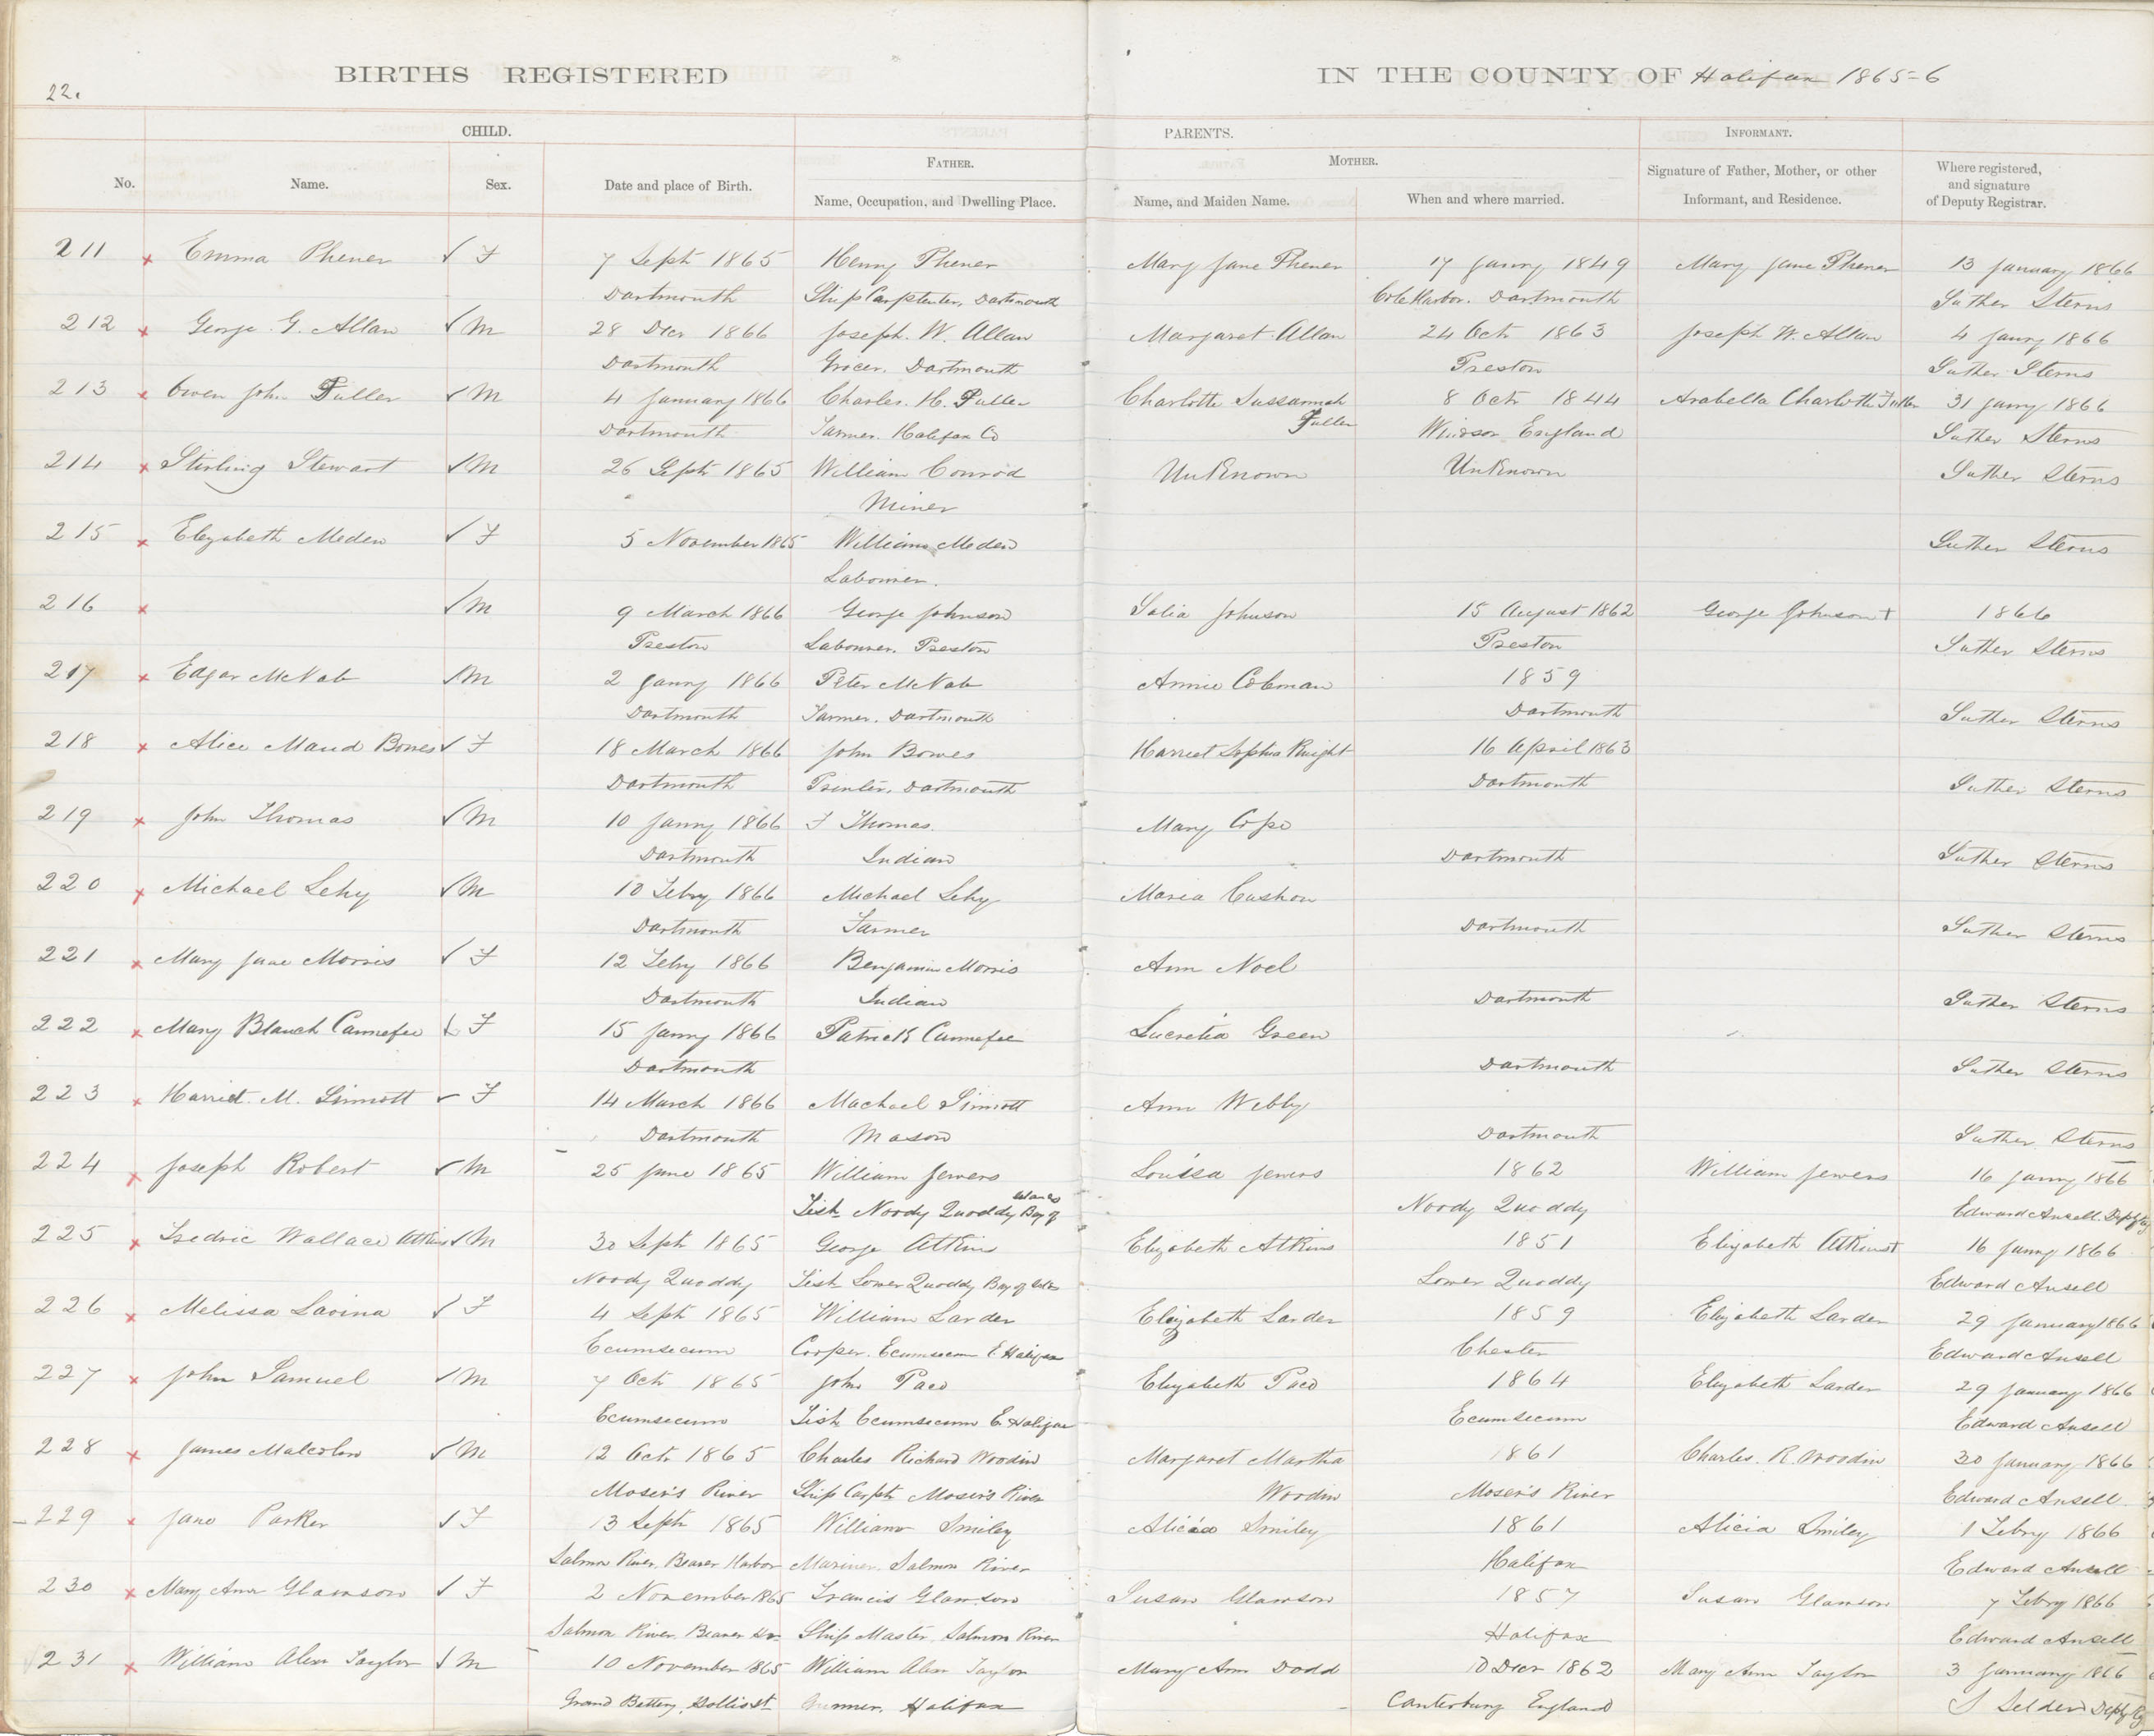 22.
BIRTHS REGISTERED IN THE COUNTY OF Halifax 1865-6
CHILD. PARENTS. INFORMANT.
FATHER. MOTHER.
No. Name. Sex. Date and place of Birth. Name, Occupation, and Dwelling Place. Name, and Maiden Name. When and where married. Signature of Father, Mother, or other Informant, and Residence. Where registered, and signature of Deputy Registrar.
211 x Emma Phener ✓ F 7 Sept 1865 Henry Phener Mary Jane Phener 17 Janry 1849 Mary Jane Phener 13 January 1866
Dartmouth Ship Carpenter, Dartmouth Cole Harbor. Dartmouth Luther Sterns
212 x George G. Allan ✓ M 28 Decr 1866 Joseph. W. Allan Margaret Allan 24 Oct 1863 Joseph W. Allan 4 Janry 1866
Dartmouth Grocer, Dartmouth Preston Luther Sterns
213 x Owen John Fuller ✓ M 4 January 1866 Charles. H. Fuller Charlotte Sussannah 8 Octr 1844 Arabella Charlotte Fuller 31 Janry 1866
Dartmouth Farmer. Halifax Co Fuller Windsor England Luther Sterns
214 x Stirling Stewart ✓ M 26 Septr 1865 William Conrod UnKnown UnKnown Luther Sterns
Miner
215 x Elezabeth Meden ✓ F 5 November 1865 William Meden Luther Sterns
Labourer.
216 x ✓ M 9 March 1866 George Johnson Johnson 15 August 1862 George Johnson + 1866
Preston Labourer. Preston Preston Luther Sterns
217 x Edgar McNab ✓ M 2 Janry 1866 Peter McNab Annie Colman 1859
Dartmouth Farmer. Dartmouth Dartmouth Luther Sterns
218 x Alice Maud Bowes ✓ F 18 March 1866 John Bowes Harriet Sophia Knight 16 April 1863
Dartmouth Printer, Dartmouth Dartmouth Luther Sterns
219 x John Thomas ✓ M 10 Janry 1866 F Thomas. Mary Cope
Dartmouth Indian Dartmouth Luther Sterns
220 x Michael Lehy ✓ M 10 Febry 1866 Michael Lehy Maria Cushon
Dartmouth Farmer Dartmouth Luther Sterns
221 x Mary Jane Morris ✓ F 12 Febry 1866 Benjamin Morris Ann Noel
Dartmouth Indian Dartmouth Luther Sterns
222 x Mary Blanch Cannefee ✓ F 15 Janry 1866 PatricK Cannefee Lucretia Green
Dartmouth Dartmouth Luther Sterns
223 x Harriet. M. Sinnott ✓ F 14 March 1866 Machael Sinnott Ann Webby
Dartmouth Mason Dartmouth Luther Sterns
224 x Joseph Robert ✓ M 25 June 1865 William Jewers Louisa Jewers 1862 William Jewers 16 Janry 1866
Fish Noody Quoddy Bay of Islands Noody Quoddy Edward Ansell. Depty Rg
225 x Fredric Wallace Atkins ✓ M 30 Sept 1865 George Atkins Elizabeth Atkins 1851 Elizabeth Atkins + 16 Janry 1866
Noody Quoddy Fish Lower Quoddy Bay of Isds Lower Quoddy Edward Ansell
226 x Melissa Lavina ✓ F 4 Sept 1865 William Larder Elizabeth Larder 1859 Elizabeth Larder 29 January 1866
Ecumsecum Cooper. Ecumsecum E. Halifax Chester Edward Ansell
227 x John Samuel ✓ M 7 Octr 1865 John Pace Elizabeth Pace 1864 Elizabeth Larder 29 January 1866
Ecumsecum Fish Ecumsecum E. Halifax Ecumsecum Edward Ansell
228 x James Malcolm ✓ M 12 Octr 1865 Charles Richard Woodin Margaret Martha 1861 Charles. R. Woodin 30 January 1866
Moser's River Ship Carptr Moser's River Woodin Moser's River Edward Ansell
229 x Jane Parker ✓ F 13 Septr 1865 William Smiley Alicia Smiley 1861 Alicia Smiley 1 Febry 1866
Salmon River, Beaver Harbor Mariner, Salmon River Halifax Edward Ansell
230 x Mary Ann Glawson ✓ F 2 November 1865 Francis Glawson Susan Glawson 1857 Susan Glawson 7 Febry 1866
Salmon River. Beaver Hr Ship Master, Salmon River Halifax Edward Ansell
231 x William Alexr Taylor ✓ M 10 November 1865 William Alexr Taylor Mary Ann Dodd 10 Decr 1862 Mary Ann Taylor 3 January 1866
Grand Battery, Hollis St Gunner, Halifax Canterbury England S Selden Depty Rg